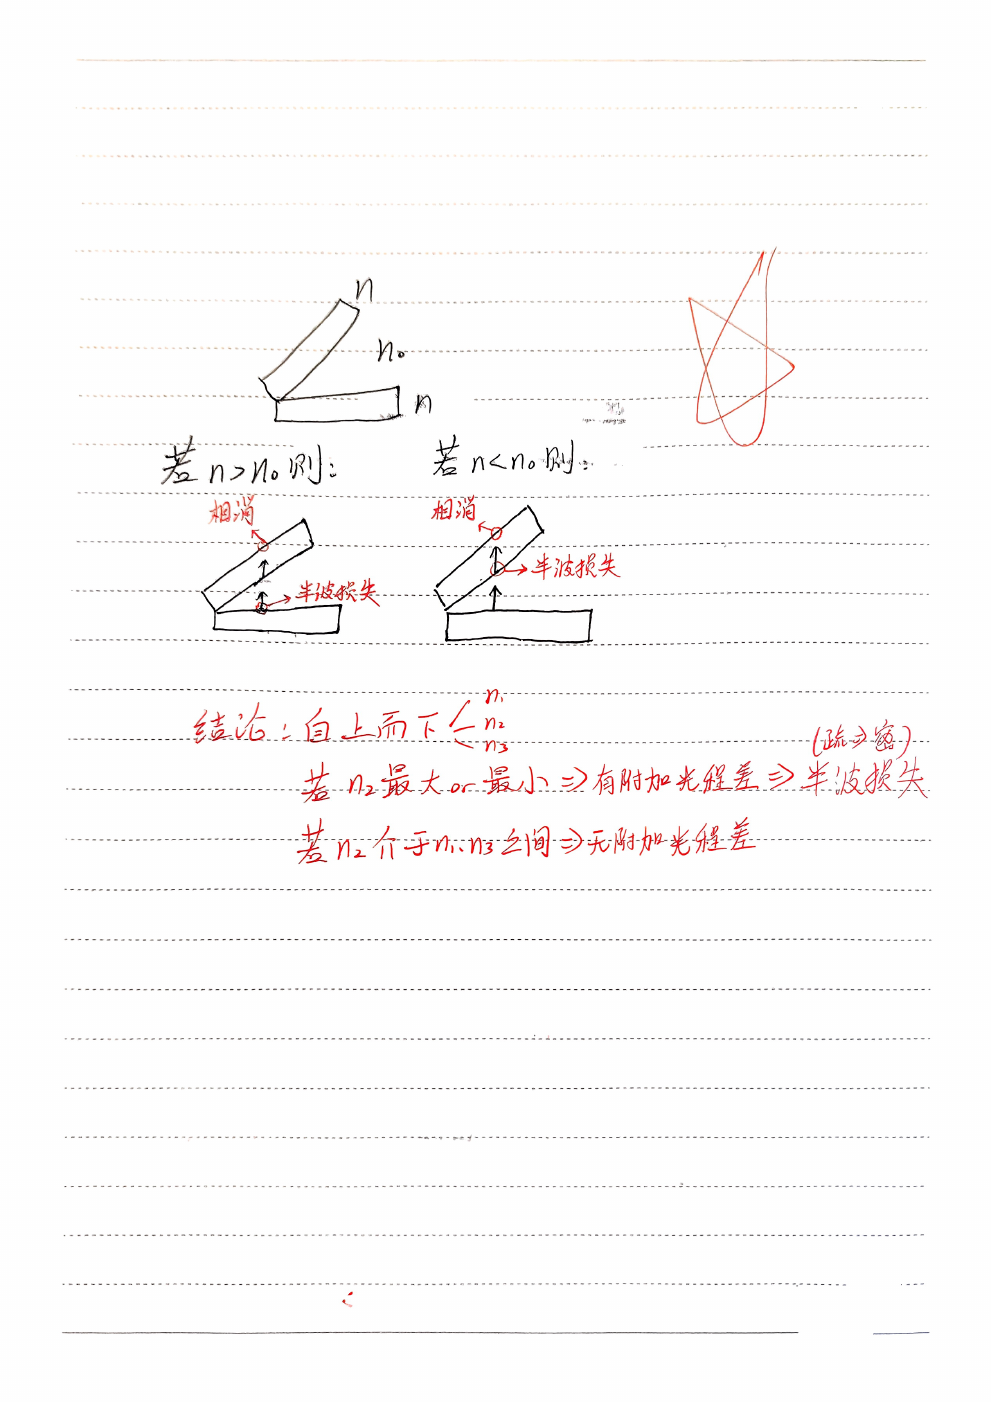 n
n₀
n
若 n>n₀ 则：
若 n<n₀ 则：
相消
相消
半波损失
半波损失
结论：自上而下
n₁
n₂
n₃
(疏→密)
若 n₂ 最大 or 最小 ⇒ 有附加光程差 ⇒ 半波损失
若 n₂ 介于 n₁、n₃ 之间 ⇒ 无附加光程差